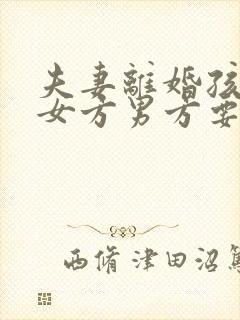 夫妻離婚孩
女方男方要
西脩津田沼篤